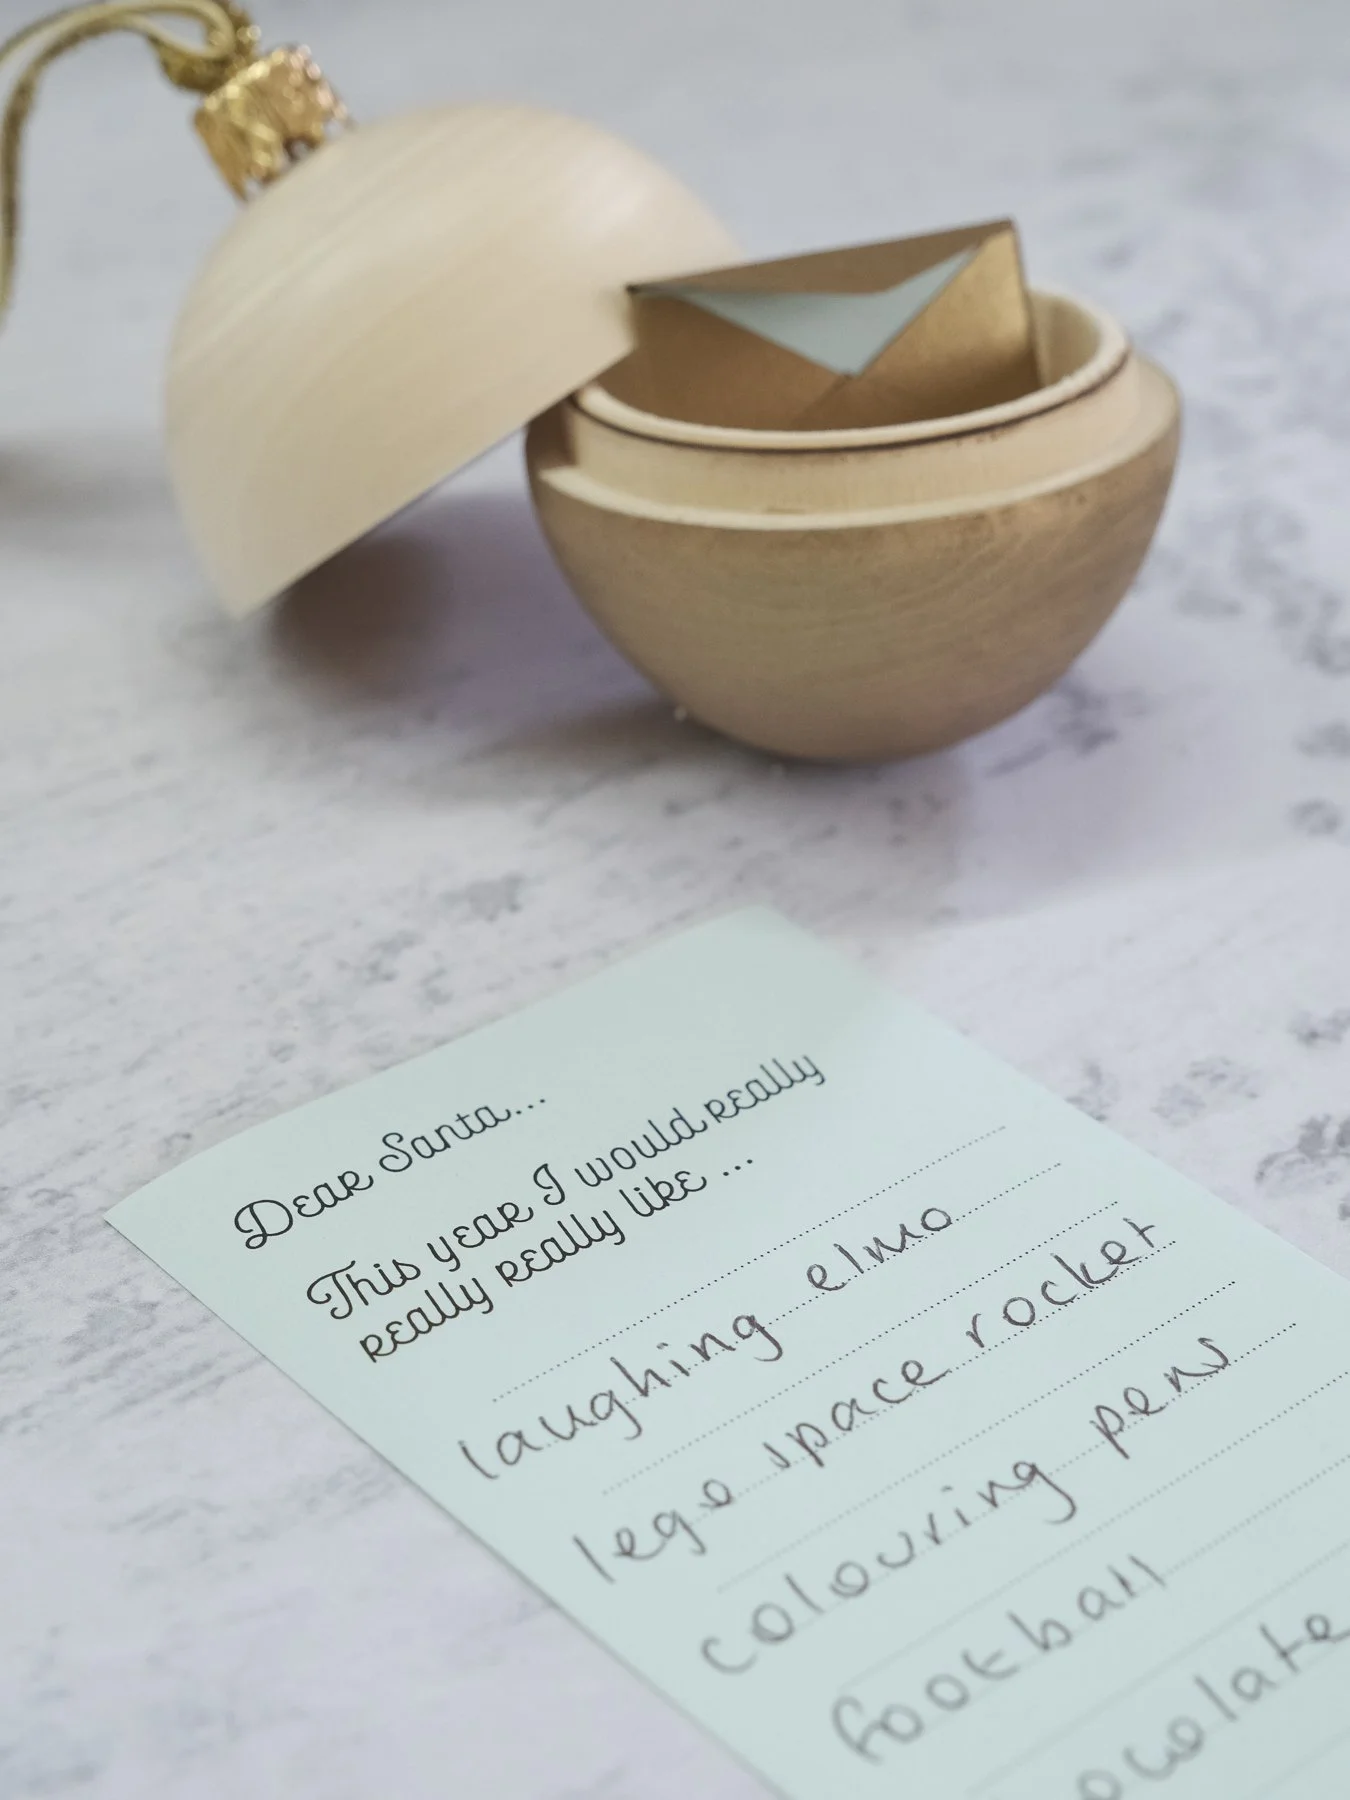 Dear Santa...
This year I would really
really really like ...
laughing elmo
lego space rocket
colouring pens
football
ocolate